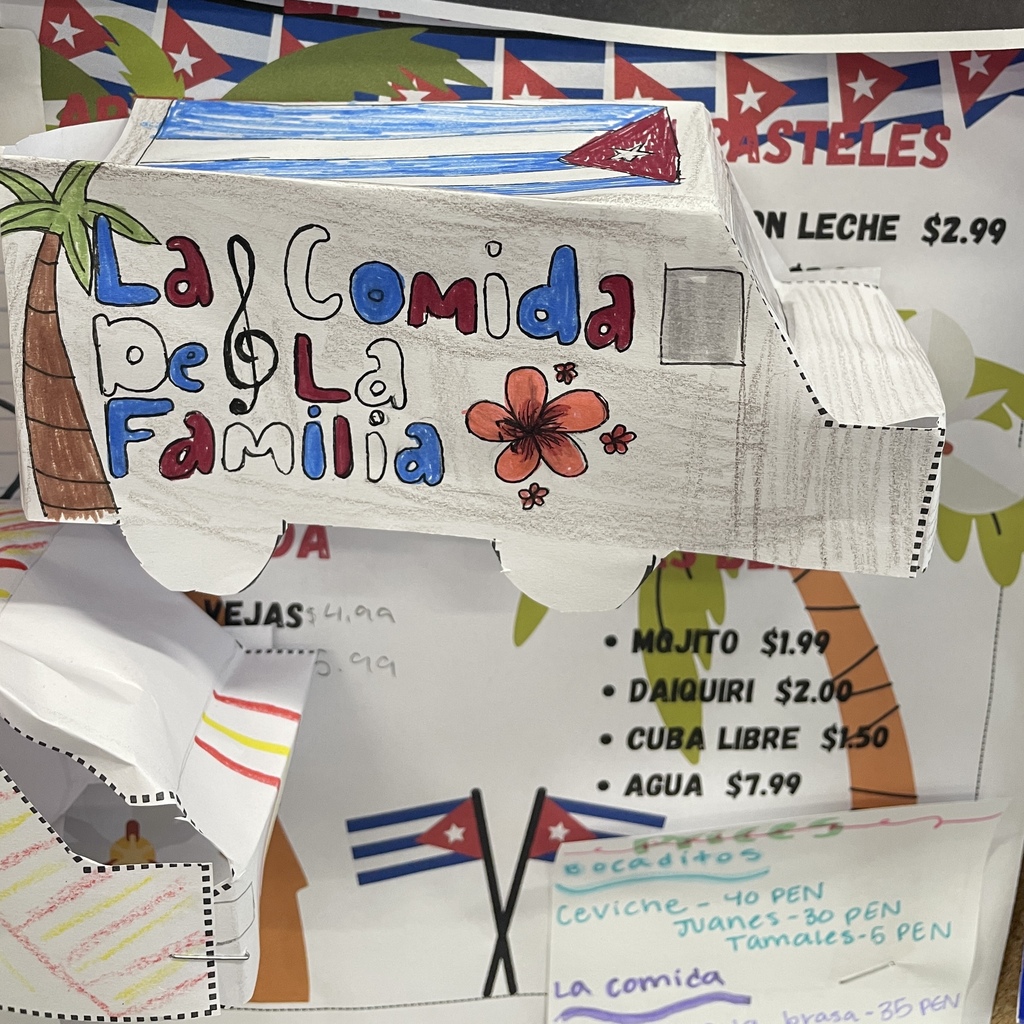 PASTELES
LECHE $2.99
La Comida
De La
Familia
$4.99
MOJITO $1.99
DAIQUIRI $2.00
CUBA LIBRE $1.50
AGUA $7.99
Bocaditos
Ceviche - 40 PEN
Juanes - 30 PEN
Tamales - 5 PEN
La comida
brasa - 35 PEN